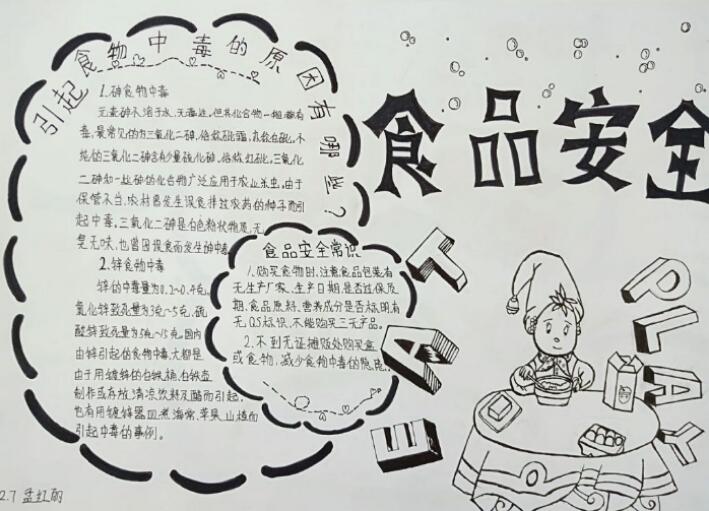 引起食物中毒的原因有哪些？
1.砷食物中毒
元素砷不溶于水，无毒性，但其化合物一般都有
毒，最常见的为三氧化二砷，俗称砒霜，亦称白砒，不
纯的三氧化二砷含有少量硫化砷，俗称红砒，三氧化
二砷和一些砷的化合物广泛应用于农业杀虫，由于
保管不当，农村曾发生误食拌过农药的种子而引
起中毒，三氧化二砷是白色粉状物质，无
臭无味，也曾因误食而发生砷中毒
2.锌食物中毒
锌的中毒量为0.2~0.4克，
氧化锌致死量为3克~5克，硫
酸锌致死量为5克~15克。国内
由锌引起的食物中毒，大都是
由于用镀锌的白铁桶，白铁壶
制作或存放清凉饮料及醋而引起，
也有用镀锌器皿煮海棠、苹果、山楂而
引起中毒的事例。
食品安全常识
1.购买食物时，注意食品包装有
无生产厂家、生产日期，是否过保质
期，食品原料、营养成分是否标明，有
无QS标识，不能购买三无产品。
2.不到无证摊贩处购买盒
或食物，减少食物中毒的隐患。
食品安全
EAT
PLAY
2.7 孟红